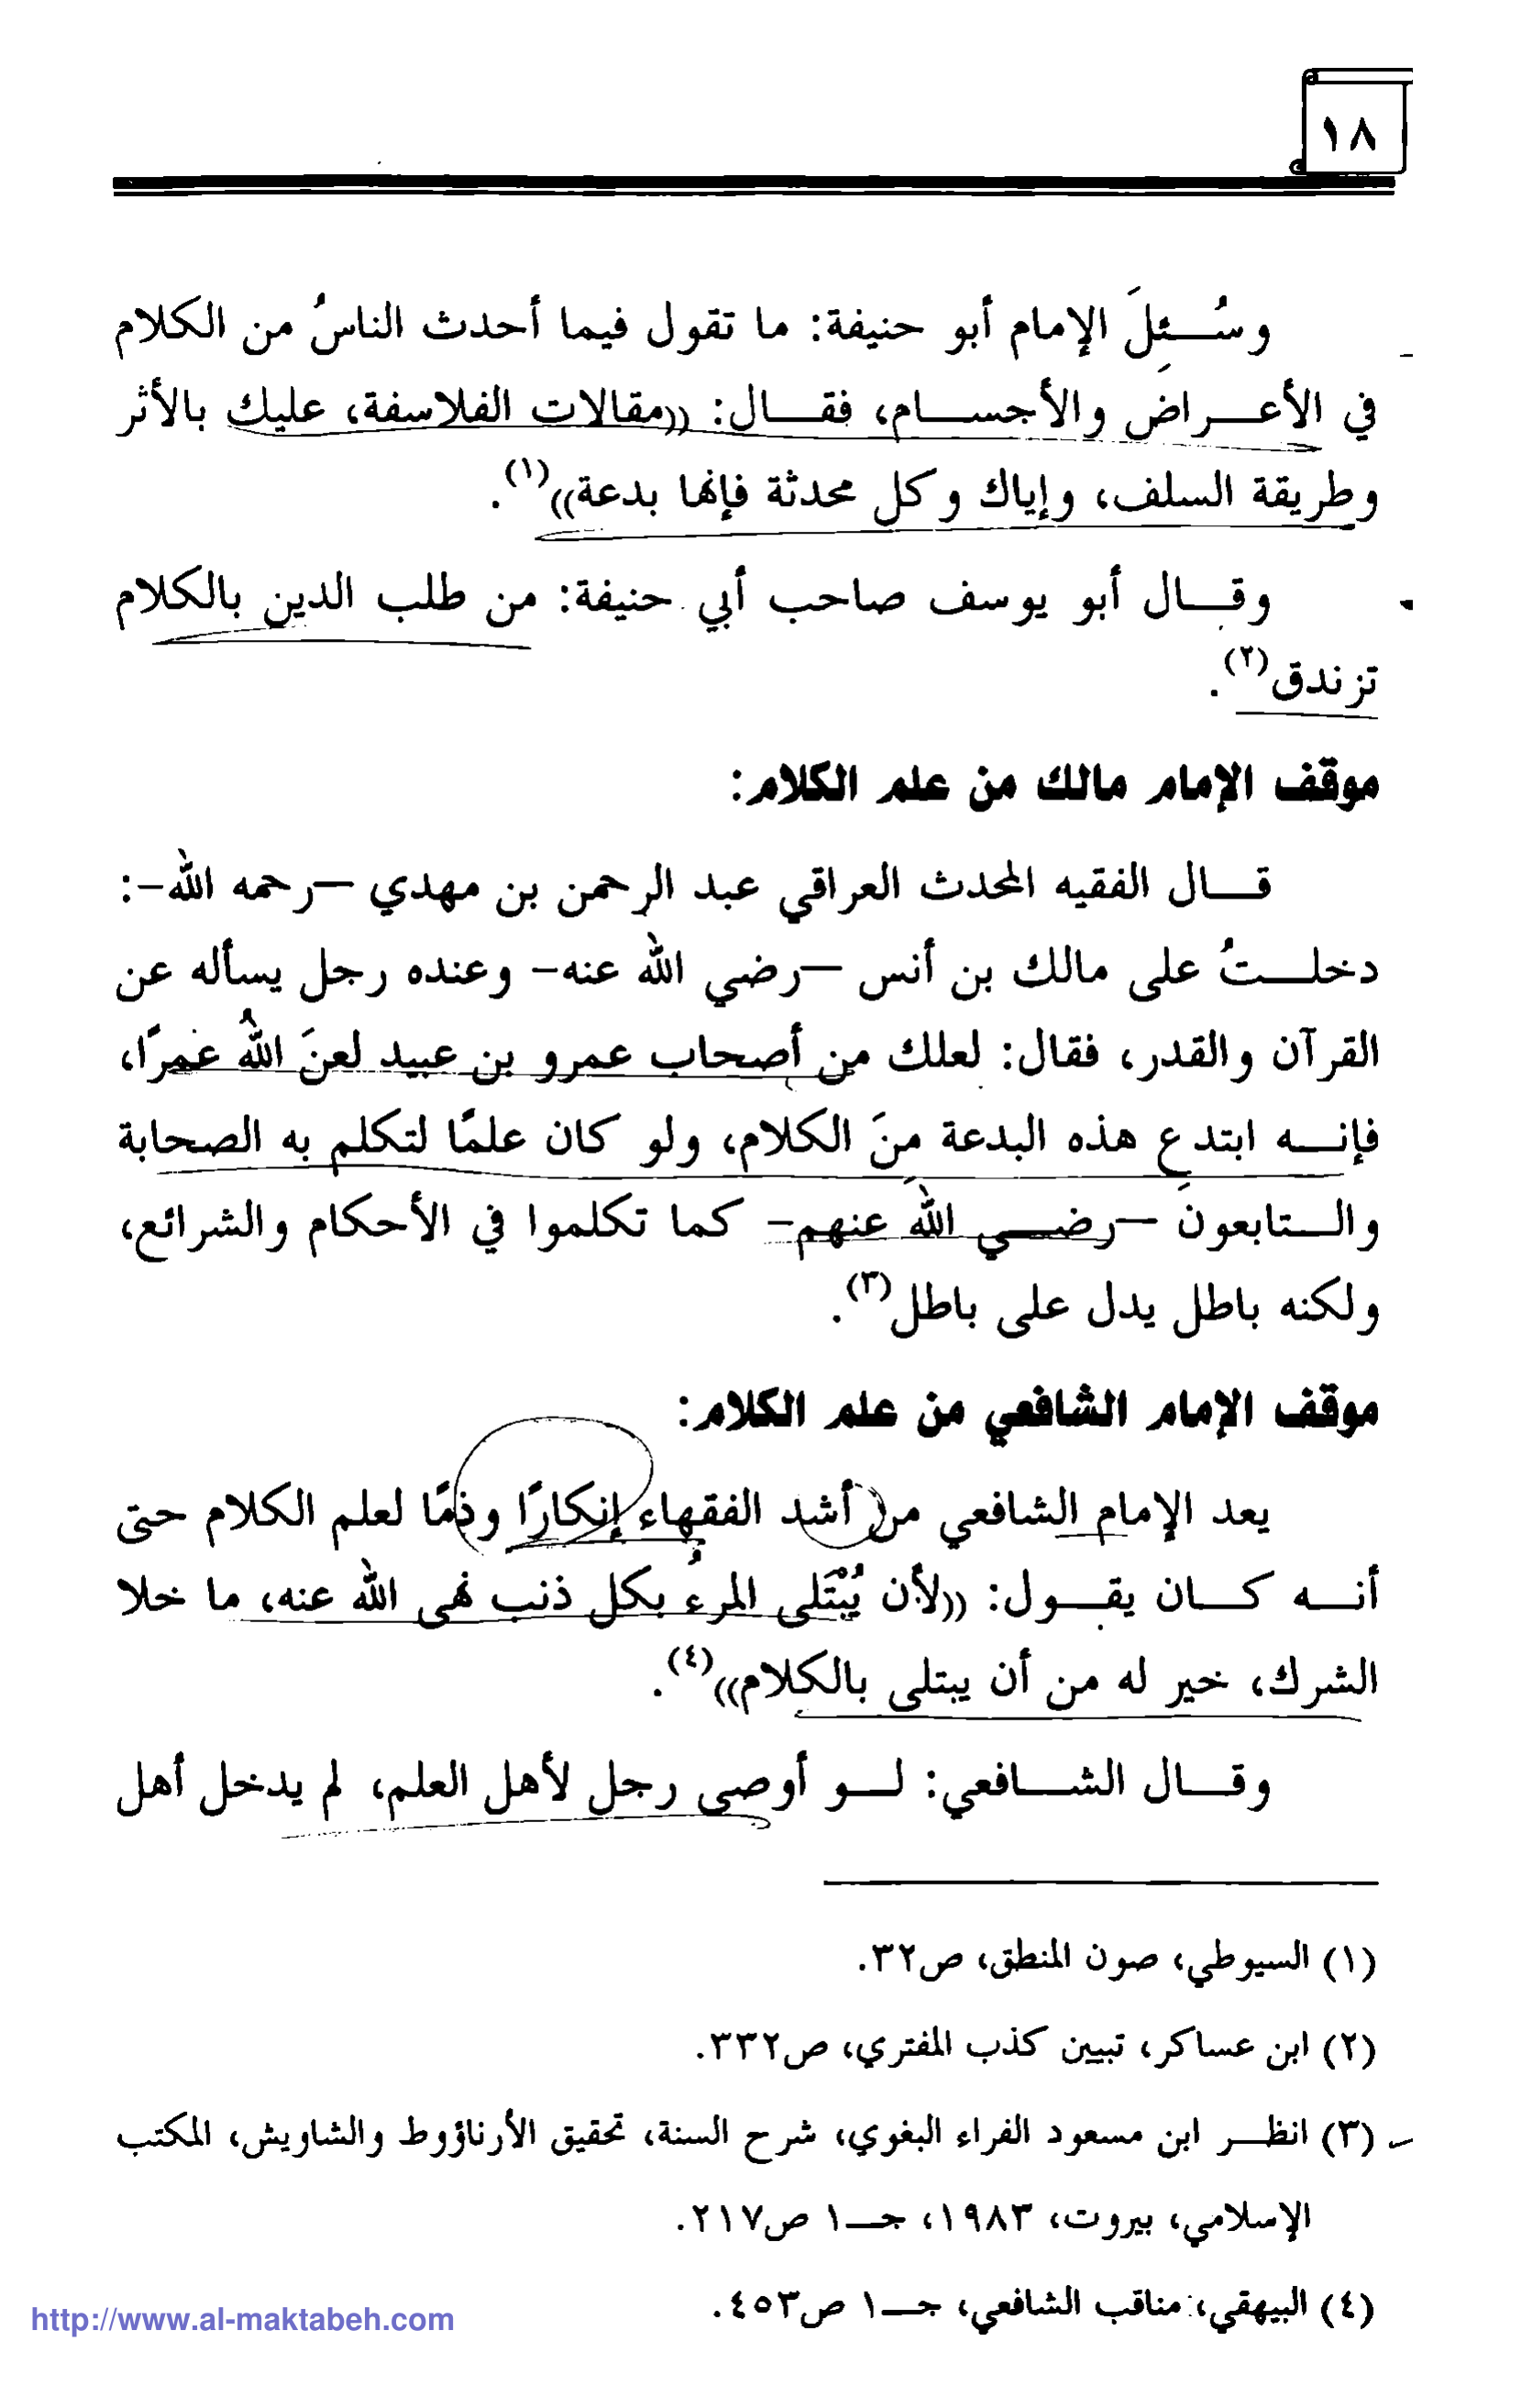 ١٨
وسُئِلَ الإمام أبو حنيفة: ما تقول فيما أحدث الناسُ من الكلام
في الأعراضِ والأجسام، فقال: ((مقالات الفلاسفة، عليك بالأثر
وطريقة السلف، وإياك وكل محدثة فإنها بدعة))(١).
وقال أبو يوسف صاحب أبي حنيفة: من طلب الدين بالكلام
تزندق(٢).
موقف الإمام مالك من علم الكلام:
قال الفقيه المحدث العراقي عبد الرحمن بن مهدي –رحمه الله–:
دخلتُ على مالك بن أنس –رضي الله عنه– وعنده رجل يسأله عن
القرآن والقدر، فقال: لعلك من أصحاب عمرو بن عبيد لعنَ اللهُ عمرًا،
فإنه ابتدع هذه البدعة منَ الكلام، ولو كان علمًا لتكلم به الصحابة
والتابعونَ –رضي اللهَ عنهم– كما تكلموا في الأحكام والشرائع،
ولكنه باطل يدل على باطل(٣).
موقف الإمام الشافعي من علم الكلام:
يعد الإمام الشافعي من أشد الفقهاء إنكارًا وذمًا لعلم الكلام حتى
أنه كان يقول: ((لأن يُبْتَلى المرءُ بكل ذنب نهى الله عنه، ما خلا
الشرك، خير له من أن يبتلى بالكلام))(٤).
وقال الشافعي: لو أوصى رجل لأهل العلم، لم يدخل أهل
(١) السيوطي، صون المنطق، ص٣٢.
(٢) ابن عساكر، تبيين كذب المفتري، ص٣٣٢.
(٣) انظر ابن مسعود الفراء البغوي، شرح السنة، تحقيق الأرناؤوط والشاويش، المكتب
الإسلامي، بيروت، ١٩٨٣، جـ١ ص٢١٧.
(٤) البيهقي، مناقب الشافعي، جـ١ ص٤٥٣.
http://www.al-maktabeh.com